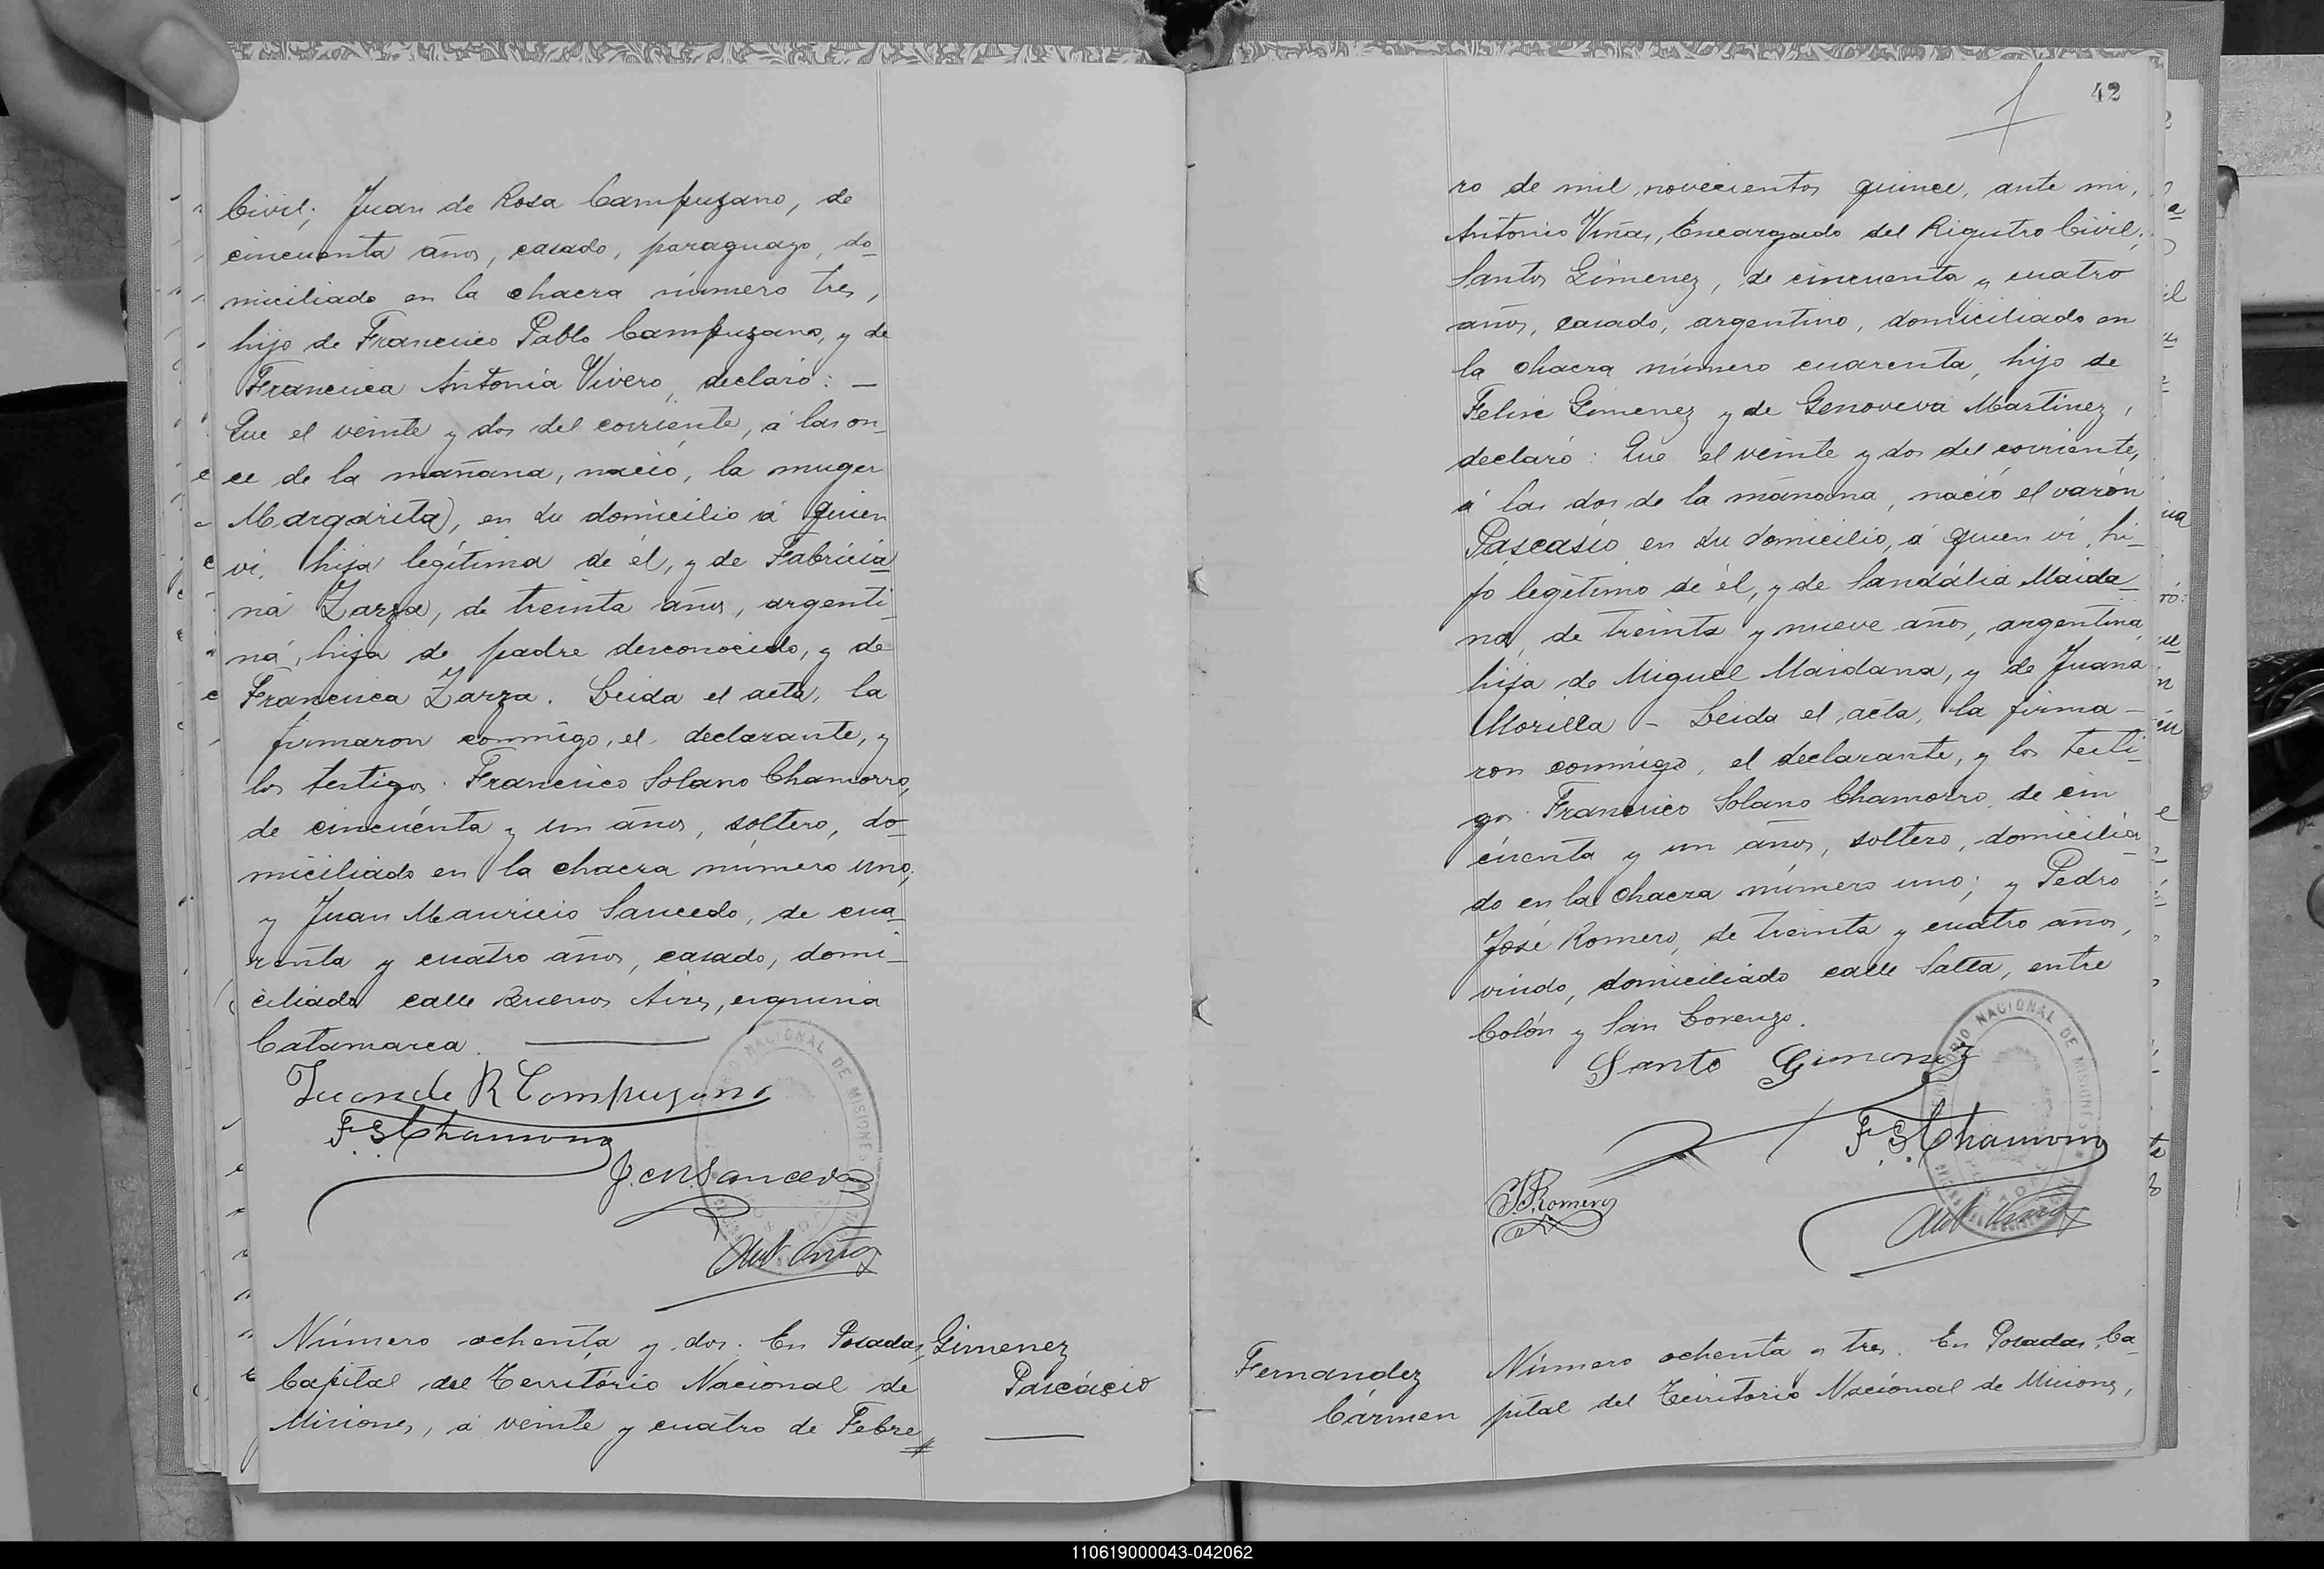 Civil; Juan de Rosa Campuzano, de
cincuenta años, casado, paraguayo, do-
miciliado en la chacra número tres,
hijo de Francisco Pablo Campuzano, y de
Francisca Antonia Vivero, declaró: —
Que el veinte y dos del corriente, á las on-
ce de la mañana, nació, la muger
Margarita, en su domicilio á quien
ví, hija legítima de él, y de Fabricia-
na Zarza, de treinta años, argenti-
na, hija de padre desconocido, y de
Francisca Zarza. Leida el acta, la
firmaron conmigo, el declarante, y
los testigos: Francisco Solano Chamorro,
de cincuenta y un años, soltero, do-
miciliado en la chacra número uno;
y Juan Mauricio Saucedo, de cua-
renta y cuatro años, casado, domi-
ciliado calle Buenos Aires, esquina
Catamarca. —
Juan de R Campuzano
F. S. Chamorro
J. M. Saucedo
Ant Viñas
Número ochenta y dos. En Posadas,
Capital del Território Nacional de
Misiones, á veinte y cuatro de Febre
Gimenez
Pascácio
42
ro de mil novecientos quince, ante mi,
Antonio Viñas, Encargado del Registro Civil;
Santos Gimenez, de cincuenta y cuatro
años, casado, argentino, domiciliado en
la chacra número cuarenta, hijo de
Felix Gimenez y de Genoveva Martinez,
declaró: Que el veinte y dos del corriente,
á las dos de la mañana, nació el varón
Pascasio en su domicilio, á quien ví, hi-
jo legítimo de él, y de Sandália Maida-
na, de treinta y nueve años, argentina,
hija de Miguel Maidana, y de Juana
Morilla — Leida el acta, la firma-
ron conmigo, el declarante, y los testi-
gos: Francisco Solano Chamorro, de cin
cuenta y un años, soltero, domicilia-
do en la chacra número uno; y Pedro
José Romero, de treinta y cuatro años,
viudo, domiciliado calle Salta, entre
Colón y San Lorenzo.
Santo Gimenez
F. S. Chamorro
P. J. Romero
Ant Viñas
Fernandez
Cármen
Número ochenta y tres. En Posadas, Ca-
pital del Território Nacional de Misiones,
110619000043-042062